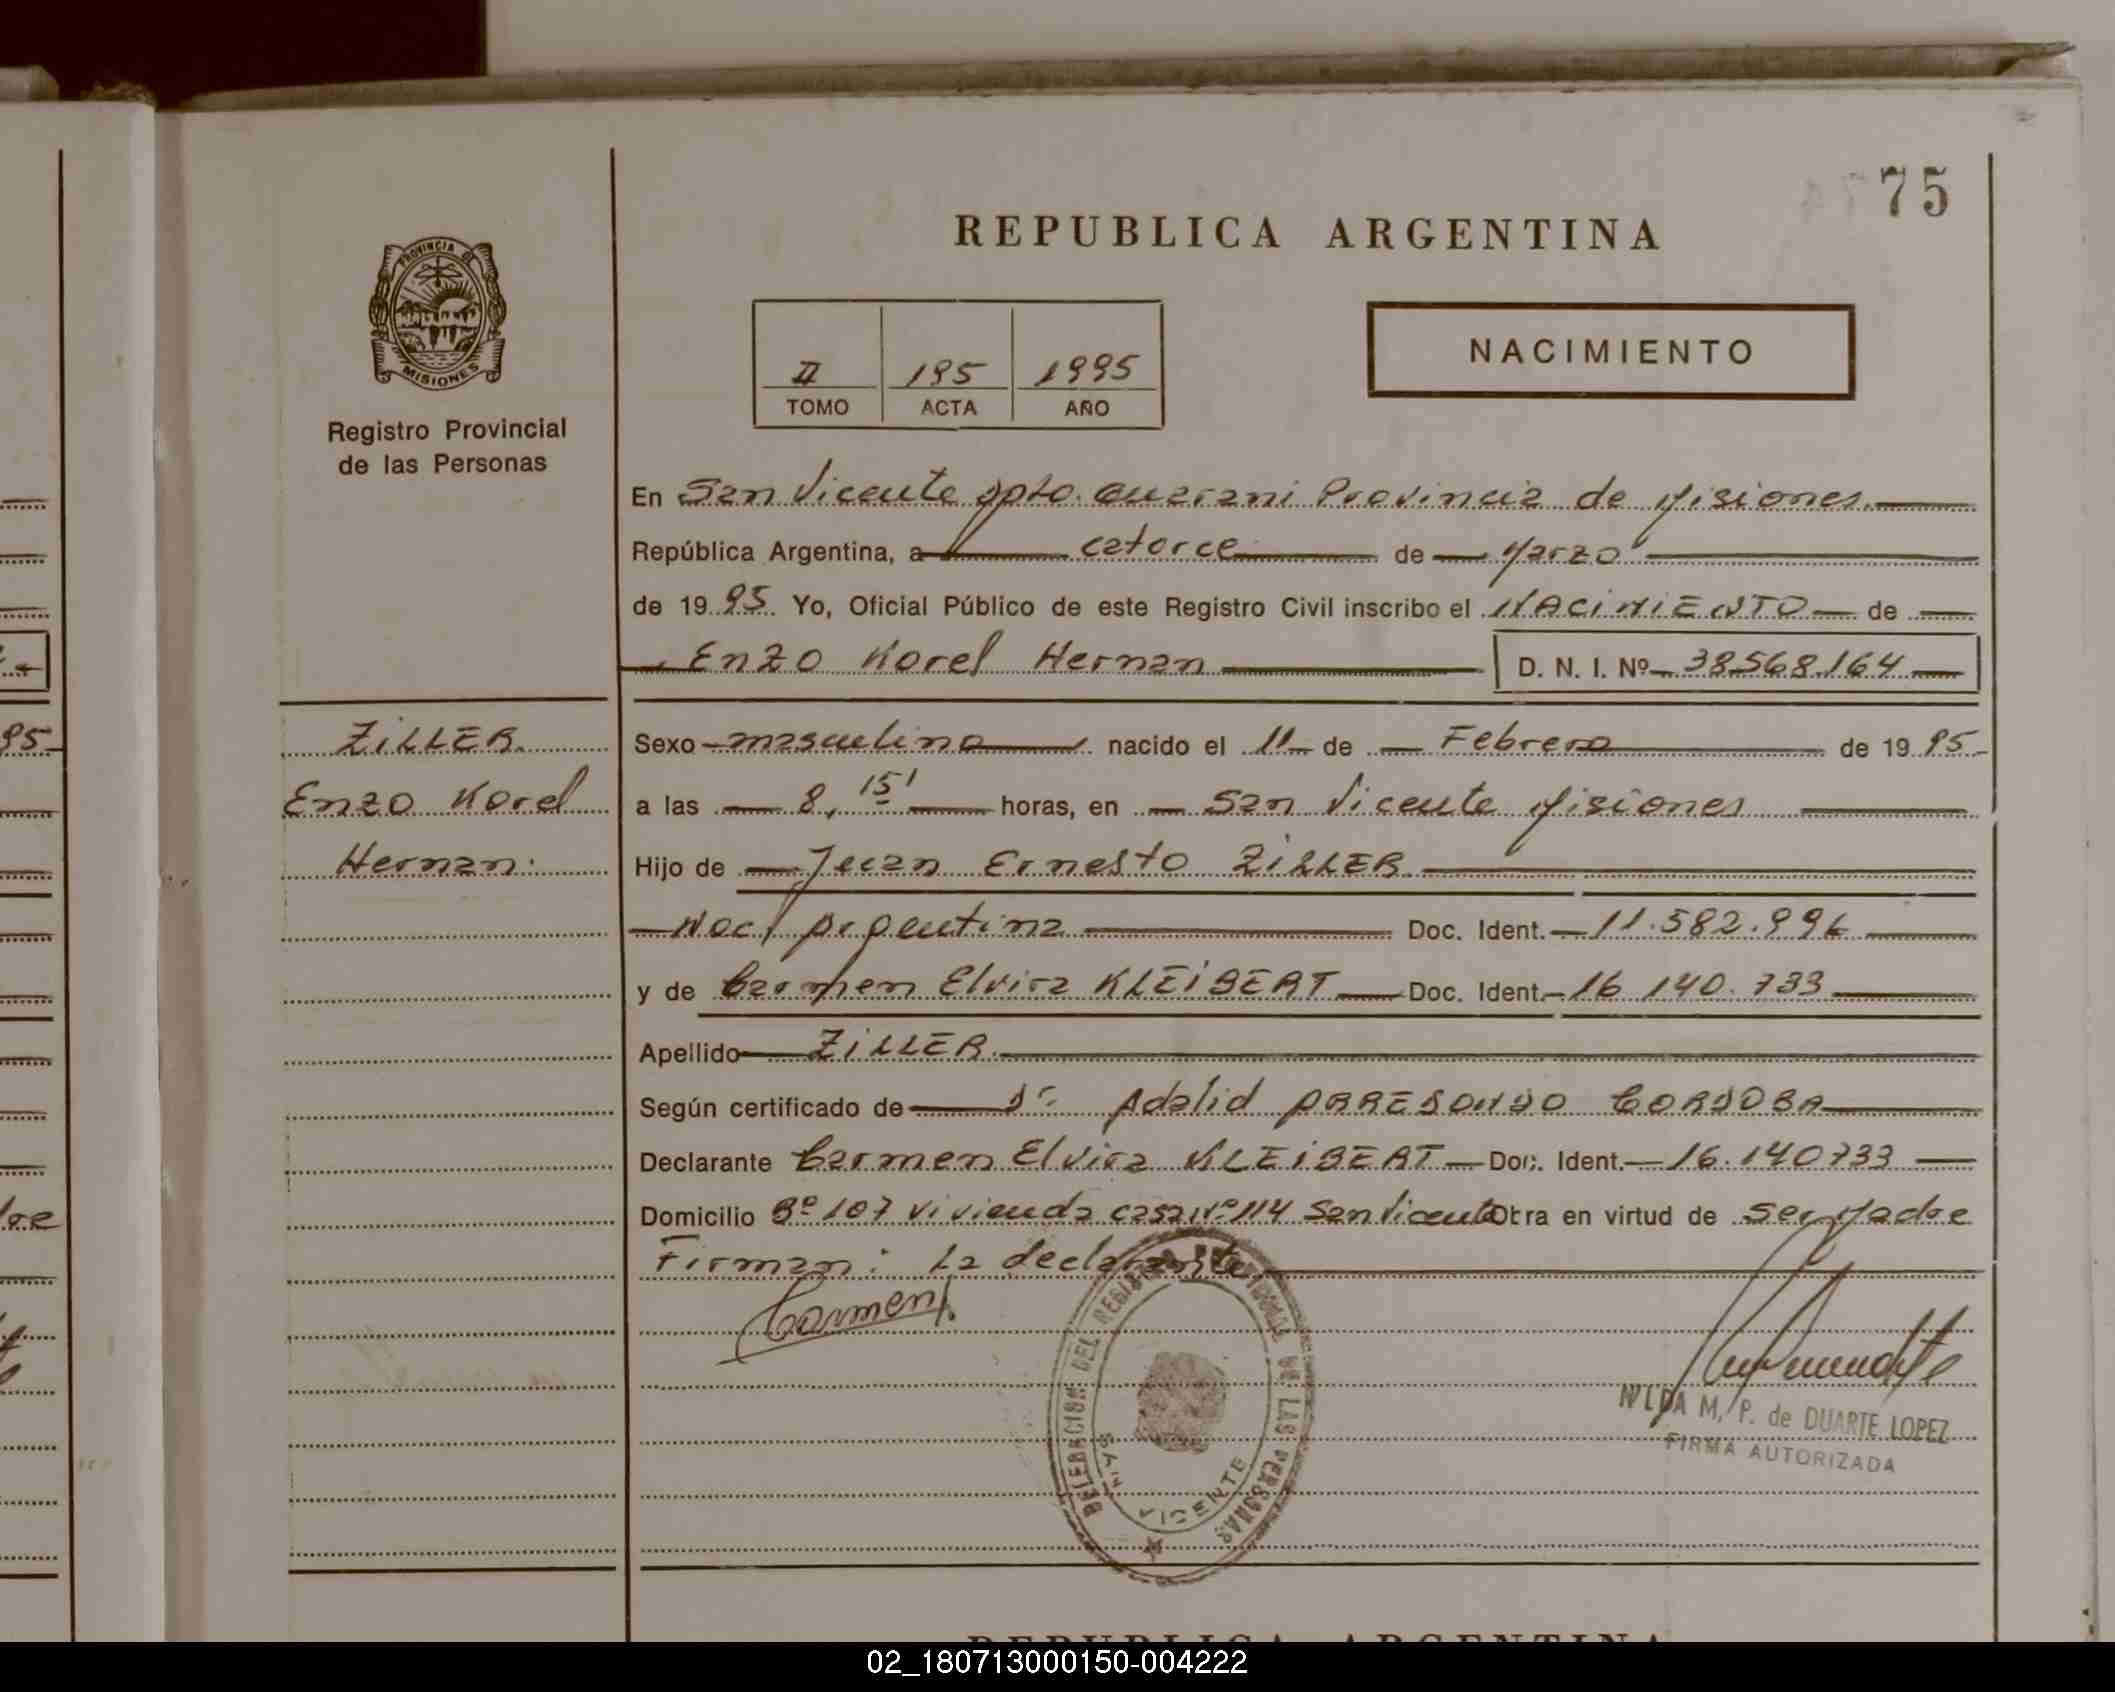 75
REPUBLICA ARGENTINA
PROVINCIA DE
MISIONES
Registro Provincial
de las Personas
II 195 1995
TOMO ACTA AÑO
NACIMIENTO
En San Vicente Dpto. Guarani Provincia de Misiones.
República Argentina, a catorce de Marzo
de 1995. Yo, Oficial Público de este Registro Civil inscribo el NACIMIENTO de
Enzo Korel Hernan D. N. I. Nº 38568.164
ZILLER
Enzo Korel
Hernan.
Sexo masculino nacido el 11 de Febrero de 1995
a las 8, 15' horas, en San Vicente Misiones
Hijo de Juan Ernesto ZILLER
Nac/ Argentina Doc. Ident. 11.582.996
y de Carmen Elvira KLEIBERT Doc. Ident. 16 140.733
Apellido ZILLER
Según certificado de Dr. Adalid ARREDONDO CORDOBA
Declarante Carmen Elvira KLEIBERT Doc. Ident. 16.140733
Domicilio Bº 107 vivienda casa Nº 114 San Vicente Obra en virtud de ser Madre
Firman: La declarante
Carmen
DELEGACION DEL REGISTRO PROVINCIAL DE LAS PERSONAS
SAN VICENTE
NILDA M. P. de DUARTE LOPEZ
FIRMA AUTORIZADA
REPUBLICA ARGENTINA
02_180713000150-004222